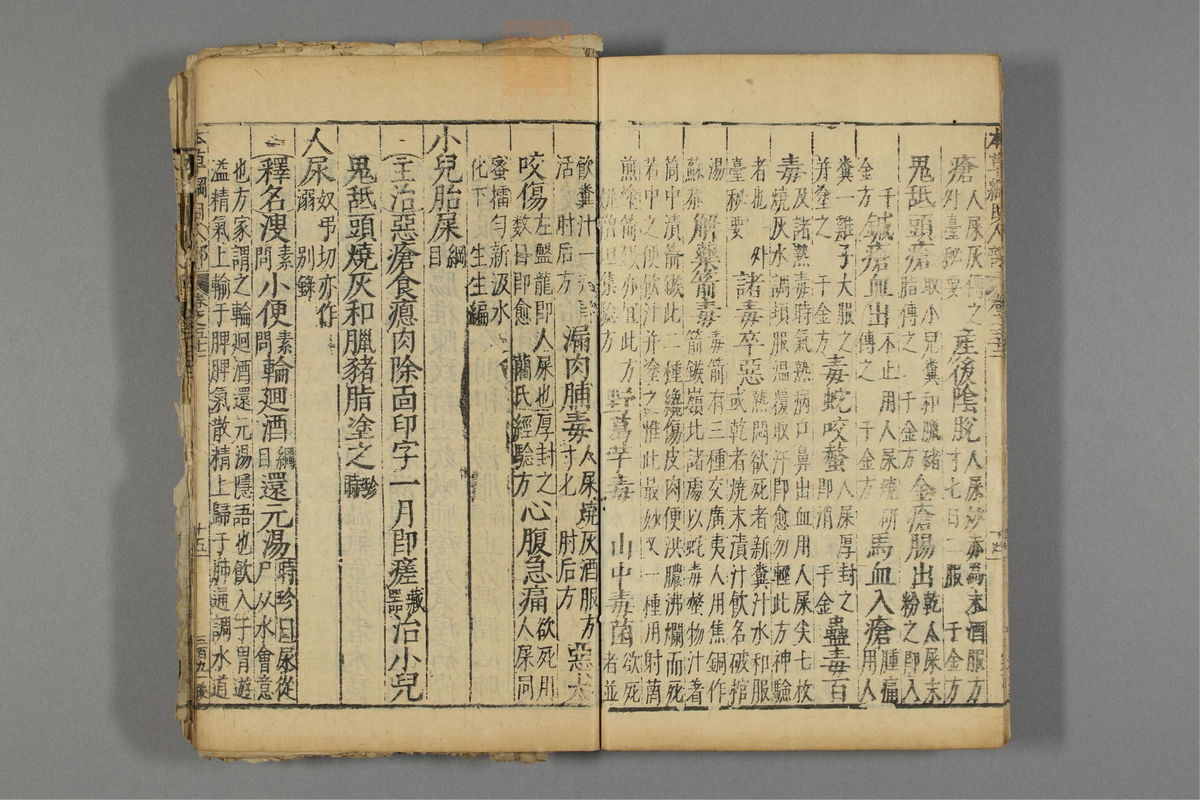 瘡人屎灰傅之外臺秘要 產後陰脫人屎炒赤爲末酒服方寸七日二服 千金方
鬼舐頭瘡取小兒糞和臘豬脂傅之 千金方 金瘡腸出乾人屎末粉之即入
千金方 鍼瘡血出不止用人屎燒研傅之 千金方 馬血入瘡腫痛用人
糞一雞子大服之并塗之 千金方 毒蛇咬螫人屎厚封之即消 千金 蠱毒百
毒及諸熱毒時氣熱病口鼻出血用人屎尖七枚燒灰水調頓服溫覆取汗即愈勿輕此方神驗
者也 外臺秘要 諸毒卒惡熱悶欲死者新糞汁水和服或乾者燒末漬汁飲名破棺
湯 蘇恭 解藥箭毒毒箭有三種交廣夷人用焦銅作箭鏃嶺北諸處以蛇毒螫物汁著
筒中漬箭鏃此二種纔傷皮肉便洪膿沸爛而死若中之便飲汁并塗之惟此最妙又一種用射菵
煎塗箭鏃亦宜此方 姚僧坦集驗方 野葛芋毒 山中毒菌欲死者並
飲糞汁一升 活 肘后方 漏肉脯毒人屎燒灰酒服方寸匕 肘后方 惡犬
咬傷左盤龍即人屎也厚封之數日即愈 藺氏經驗方 心腹急痛欲死用人屎同
蜜擂勻新汲水化下 生生編
小兒胎屎綱目
主治惡瘡食瘜肉除面印字一月即瘥藏器治小兒
鬼舐頭燒灰和臘豬脂塗之時珍
人尿奴弔切亦作溺 別錄
釋名溲素問小便素問輪迴酒綱目還元湯時珍曰尿從尸从水會意
也方家謂之輪迴酒還元湯隱語也飲入于胃遊溢精氣上輸于脾脾氣散精上歸于肺通調水道
本草綱目人部 卷之五十二 十五